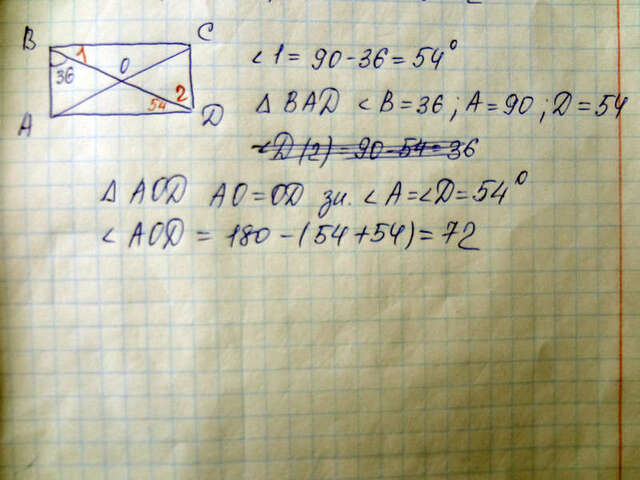 B
C
1
36
O
54
2
A
D
∠1 = 90 - 36 = 54°
Δ BAD ∠B = 36 ; A = 90 ; D = 54
∠D (2) = 90 - 54 = 36
Δ AOD AO = OD зн. ∠A = ∠D = 54°
∠ AOD = 180 - (54 + 54) = 72